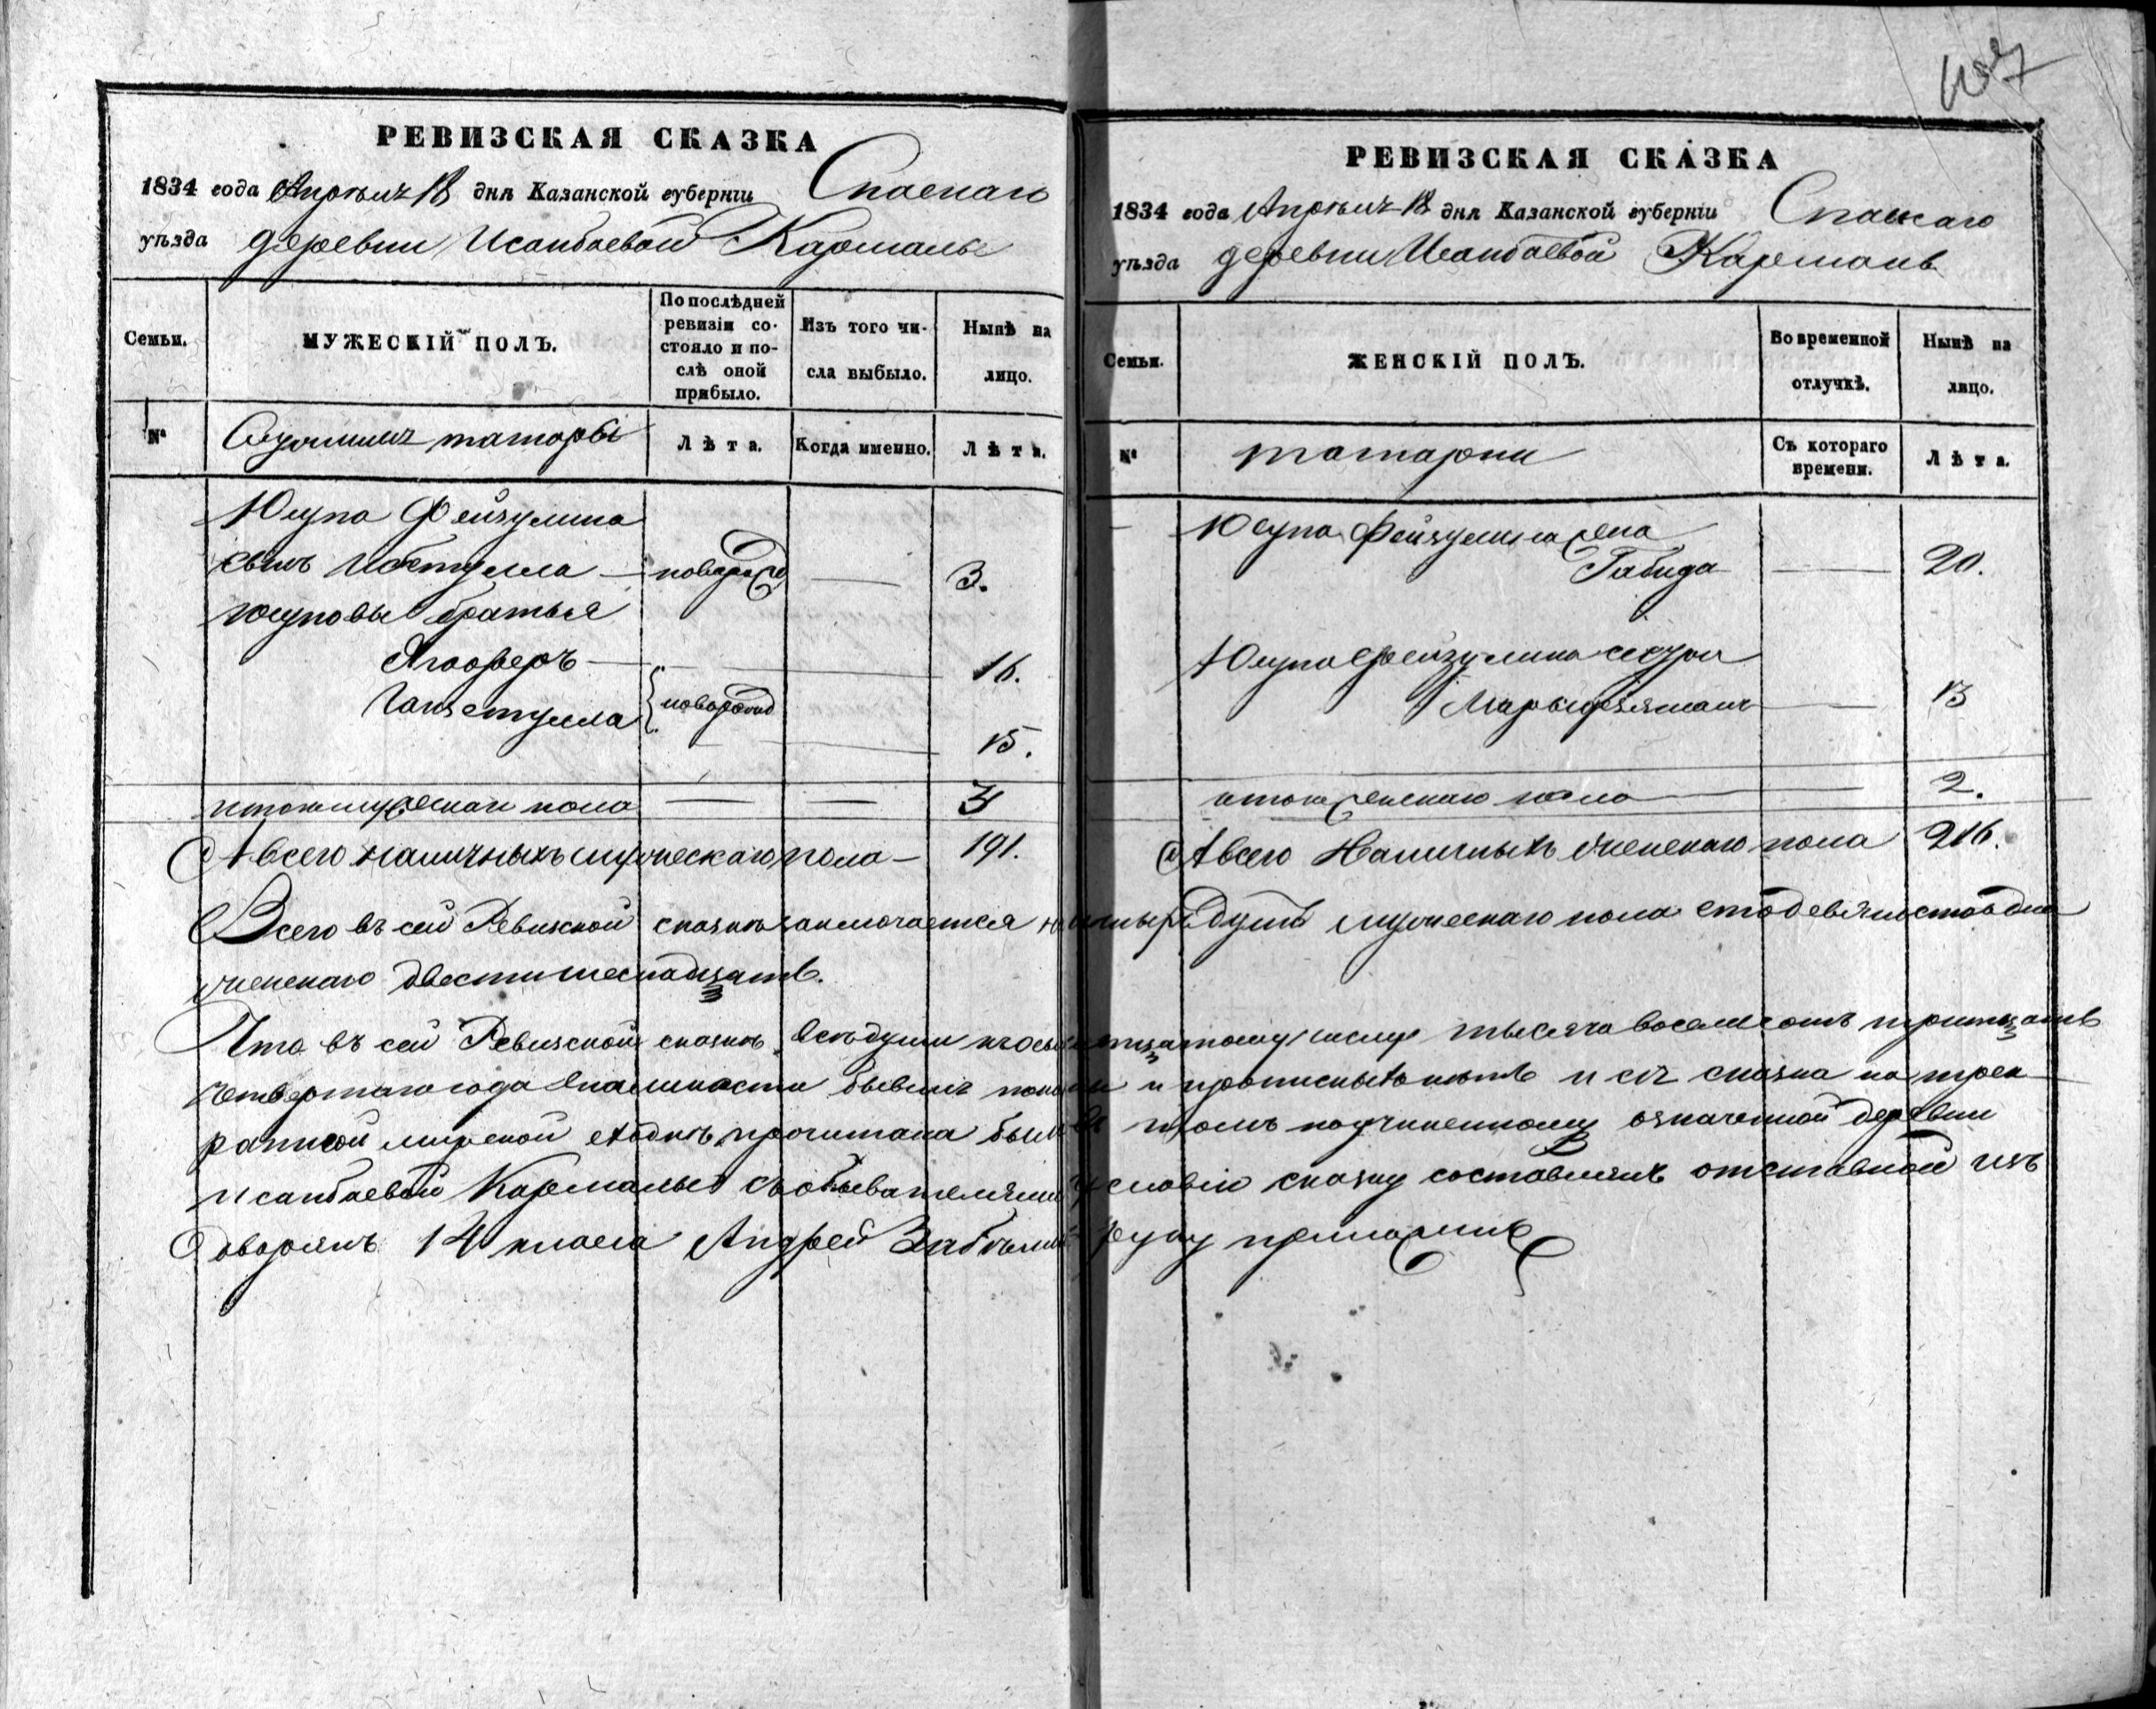 РЕВИЗСКАЯ СКАЗКА
1834 года Апреля 18 дня Казанской губерніи Спаскаго
уѣзда деревни Исанбаевой Кармалы
Семьи.
МУЖЕСКІЙ ПОЛЪ.
По послѣдней ревизіи состояло и послѣ оной прибыло.
Изъ того числа выбыло.
Нынѣ на лицо.
№
татары
Лѣта.
Когда именно.
Лѣта.
Юсупа Фейзулина
сынъ Ибетулла — новорожд — 3.
Юсуповы братья
Ягоферъ — 16.
новорожд
15.
итого мужескаго пола — — 3
А всего наличныхъ мужескаго пола — 191.
РЕВИЗСКАЯ СКАЗКА
1834 года Апреля 18 дня Казанской губерніи Спаскаго
уѣзда деревни Исанбаевой Кармалы
Семьи.
ЖЕНСКІЙ ПОЛЪ.
Во временной отлучкѣ.
Нынѣ на лицо.
№
татарки
Съ котораго времени.
Лѣта.
Юсупа Фейзулина жена
Габида — 20.
Юсупа Фейзулина сестра
13
итого женскаго пола — 2.
А всего Наличныхъ женскаго пола 216.
Всего въ сей Ревизской сказкѣ заключается душъ мужескаго пола сто девяносто одна
женскаго двести шеснадцать.
Что въ сей Ревизской сказкѣ все души числу тысяча восемсотъ тритцать
четвертаго года и прописныхъ нѣтъ и сія сказка на
мирской сходкѣ прочитана была въ томъ означенной деревни
Исанбаевой Кармалы съ обывателями условію сказку составлялъ отставной изъ
дворянъ 14 класа Андрей руку приложилъ